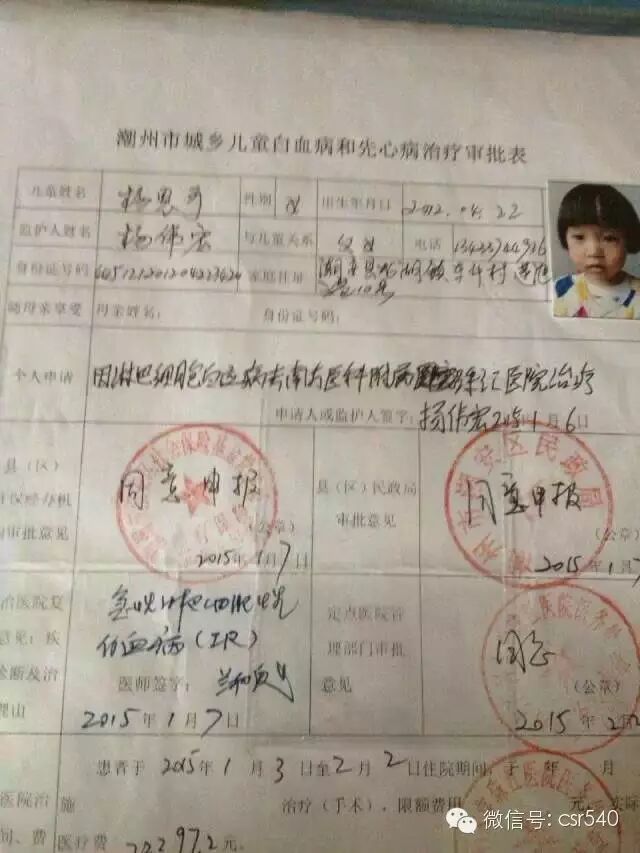 潮州市城乡儿童白血病和先心病治疗审批表
儿童姓名 杨恩 性别 女 出生年月日 2012.04.22
监护人姓名 杨伟宏 与儿童关系 父女 电话
身份证号码 家庭住址 潮安县龙湖镇
随母亲享受 母亲姓名: 身份证号码:
个人申请 因淋巴细胞白血病去南方医科附属 珠江医院治疗
申请人或监护人签字: 杨伟宏 2015 1月6日
县(区)
保经办机
审批意见
同意申报
(公章)
2015年1月7日
县(区)民政局
审批意见
安区民政局
同意申报
(公章)
2015年1月
治医院复
意见:疾
诊断及治
急性淋巴细胞性
白血病(IR)
医师签字:
2015年1月7日
定点医院管
理部门审批
意见
同意
(公章)
2015年2月
患者于2015年1月3日至2月2日住院期间,于 年 月
医院治 施 治疗(手术),限额费用 元,实际
间、费 医疗费 元.
微信号: csr540